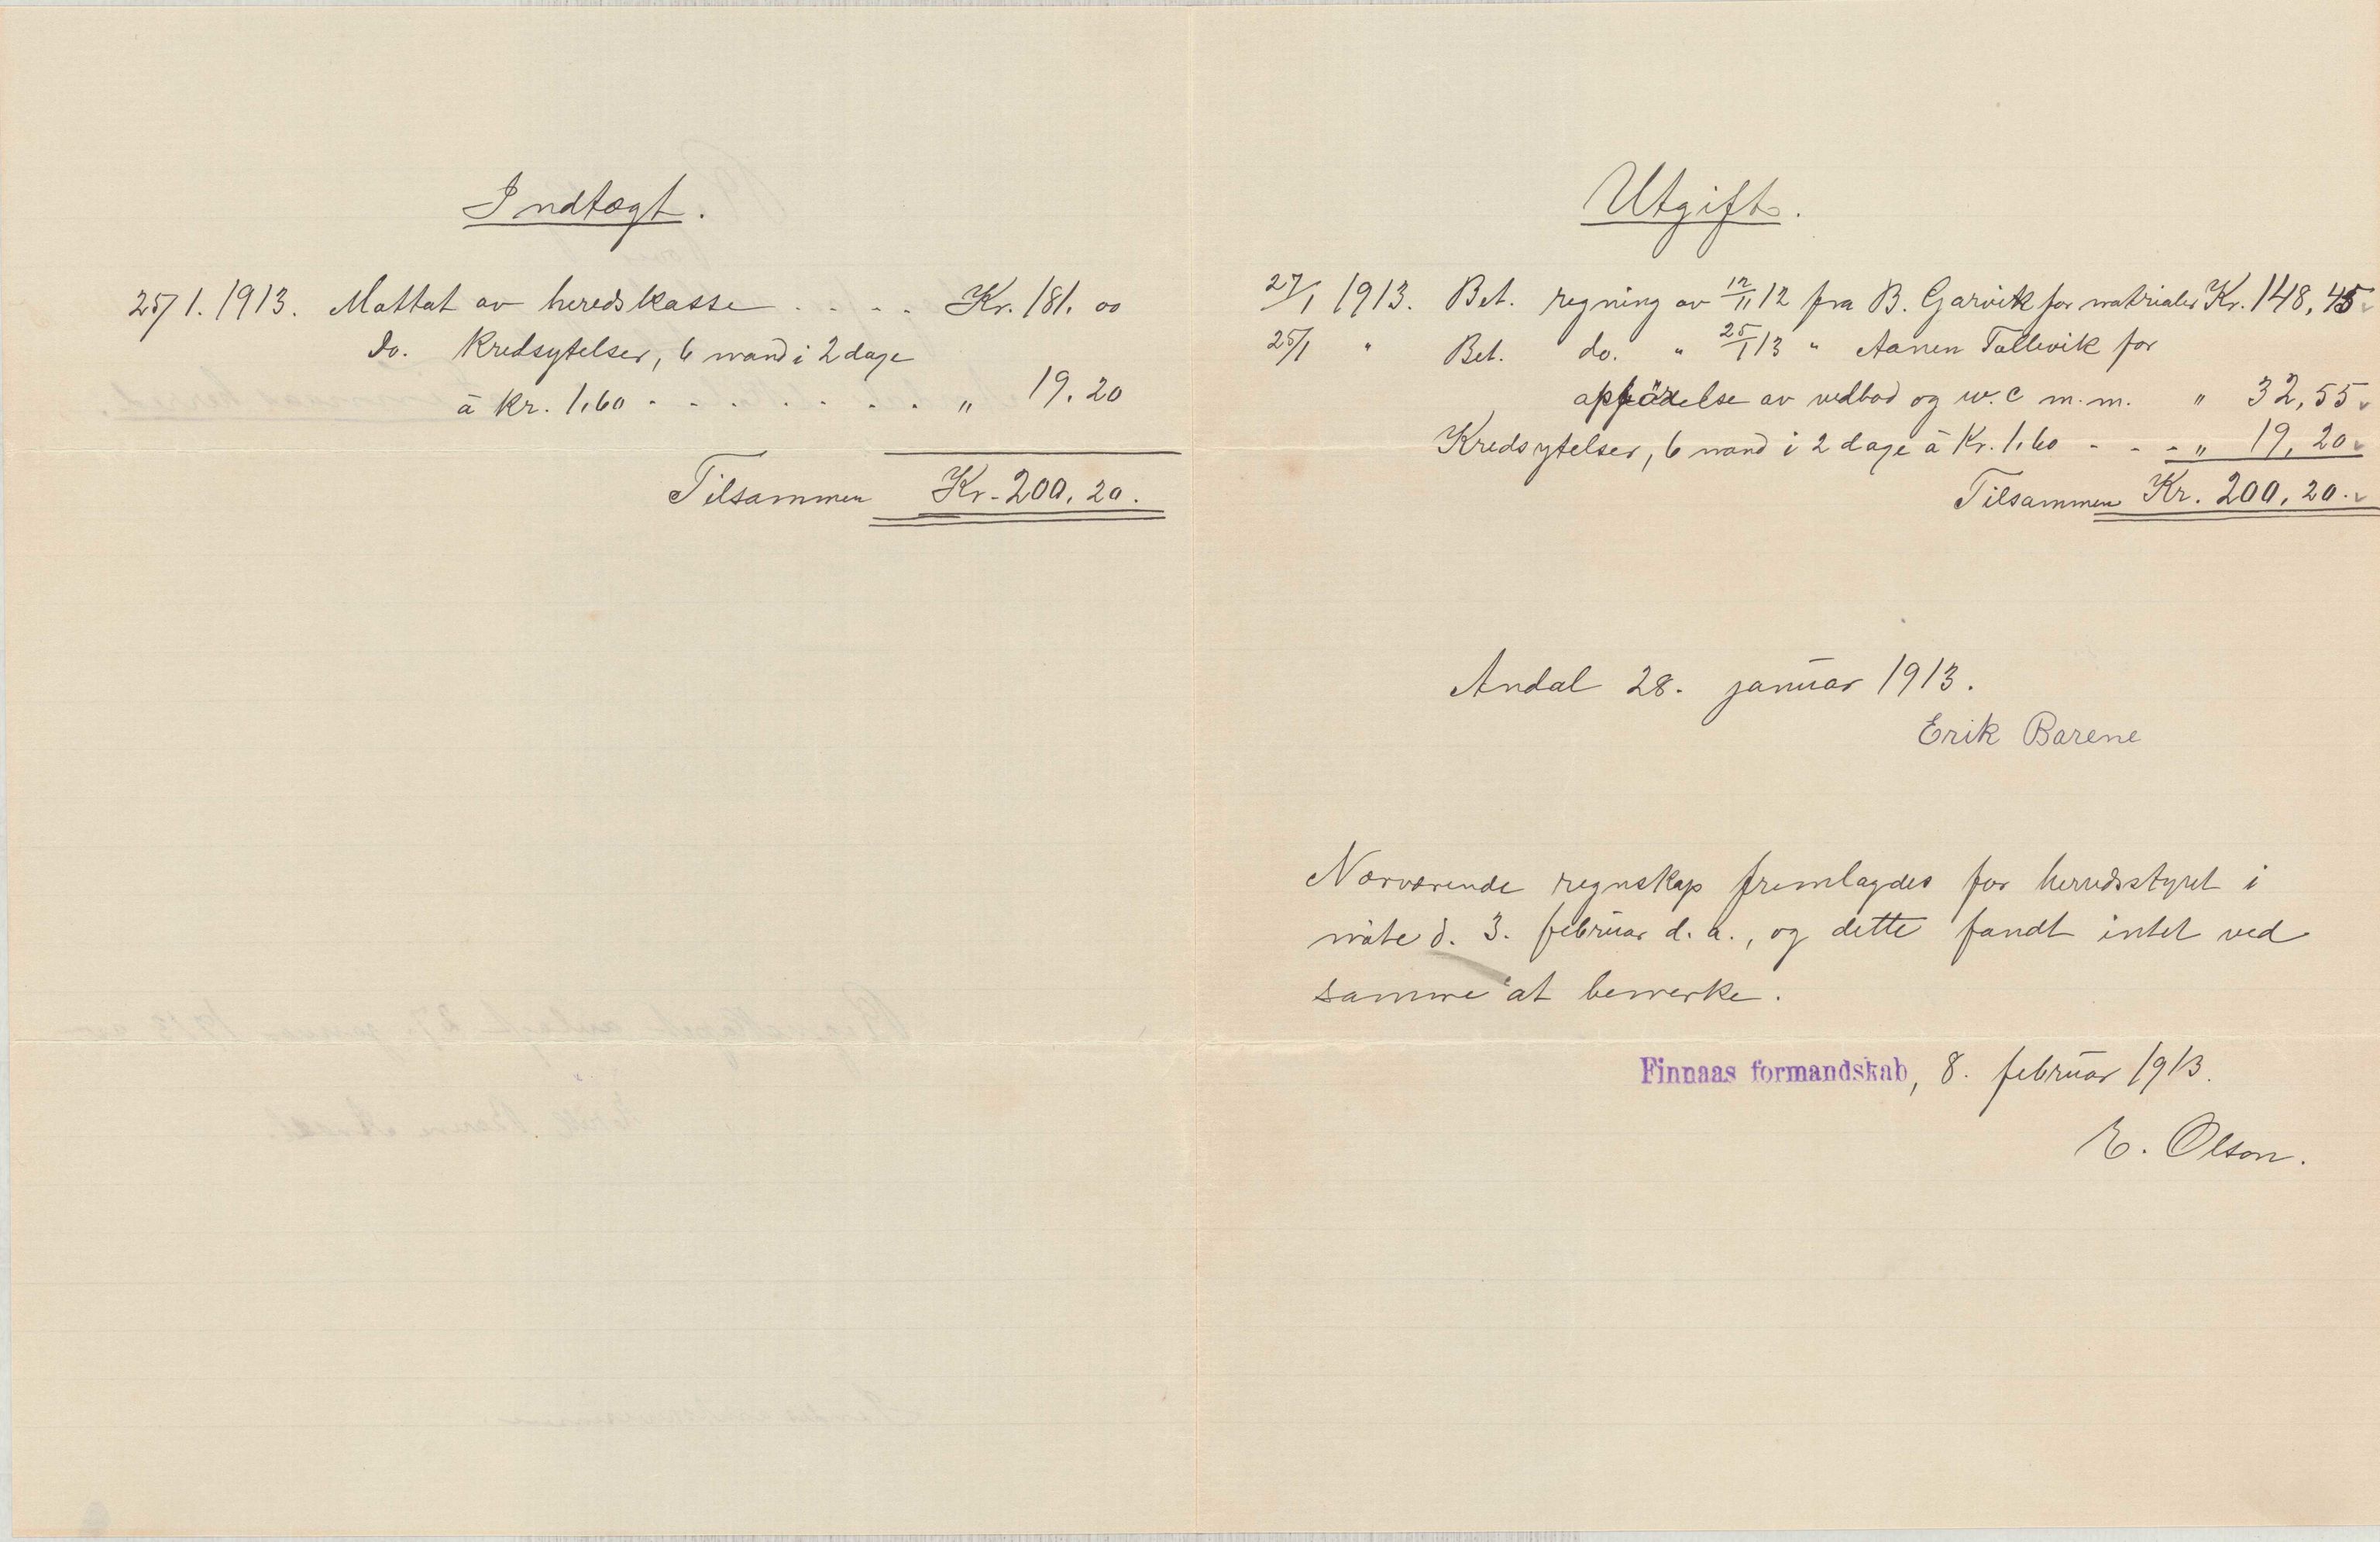 Indtægt.
25/1. 1913. Mottat av heredskasse . . . . Kr. 181. 00
do. Kredsytelser, 6 mand i 2 dage
à kr. 1,60 - - - - - - - - " 19. 20
Tilsammen Kr. 200, 20.
Utgift.
27/1 1913. Bet. regning av 12/11 12 fra B. Garvik for matrialer Kr. 148, 45
25/1 " Bet. do. " 25/1 13 " Aanen Tollevik for
opförelse av vedbod og w.c m.m. " 32, 55
Kredsytelser, 6 mand i 2 dage à Kr. 1,60 - - - " 19, 20
Tilsammen Kr. 200, 20.
Andal 28. januar 1913.
Erik Barene
Nærværende regnskap fremlagdes for herredsstyret i
möte d. 3. februar d. a., og dette fandt intet ved
samme at bemerke.
Finnaas formandskab, 8. februar 1913.
E. Olson.